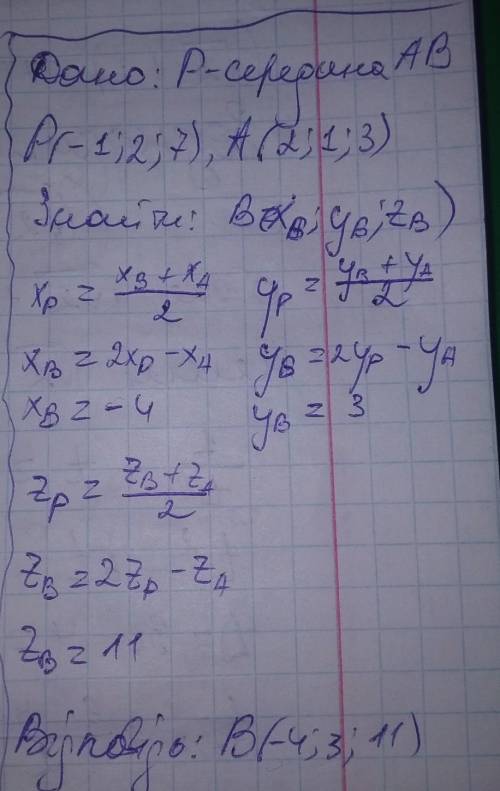 Дано: P-середина AB
P(-1; 2; 7), A(2; 1; 3)
Знайти: B(x_B; y_B; z_B)
x_P = (x_B + x_A)/2 y_P = (y_B + y_A)/2
x_B = 2x_P - x_A y_B = 2y_P - y_A
x_B = -4 y_B = 3
z_P = (z_B + z_A)/2
z_B = 2z_P - z_A
z_B = 11
Відповідь: B(-4; 3; 11)